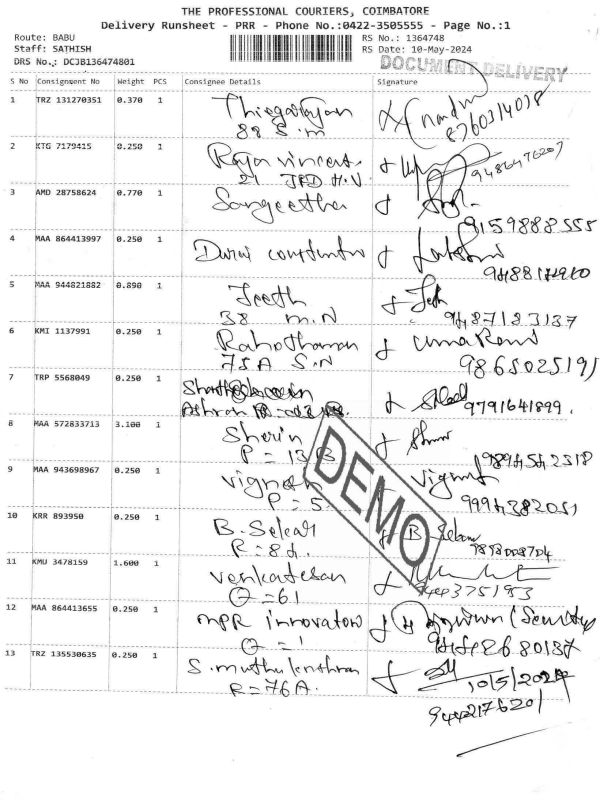 THE PROFESSIONAL COURIERS, COIMBATORE
Delivery Runsheet - PRR - Phone No.:0422-3505555 - Page No.:1
Route: BABU
RS No.: 1364748
Staff: SATHISH
RS Date: 10-May-2024
DRS No.,: DCJB136474801
DOCUMENT DELIVERY
S No Consignment No Weight PCS Consignee Details Signature
1 TRZ 131270351 0.370 1 Thiagarajan
88 S.m
8760314078
2 KTG 7179415 0.250 1 Raja vincent
21 H.N
9486476207
3 AMD 28758624 0.770 1 Sangeetha
9159888555
4 MAA 864413997 0.250 1 Durai
5 MAA 944821882 0.890 1 Jeeth
38 m.N
9487183187
6 KMI 1137991 0.250 1
75A S.N
9865025195
7 TRP 5568049 0.250 1
9791641899.
8 MAA 572833713 3.100 1 Sherin
P = 13B
9894542318
9 MAA 943698967 0.250 1 Vignesh
P = 5
9994382051
10 KRR 893950 0.250 1 B. Sekar B. Sekar
11 KMU 3478159 1.600 1 Venkatesan
Q = 61
9443751953
12 MAA 864413655 0.250 1 MPR innovators (Security)
Q = 1
9442680187
13 TRZ 135530635 0.250 1 S.
R = 76A.
10/5/2024
9442176201
DEMO